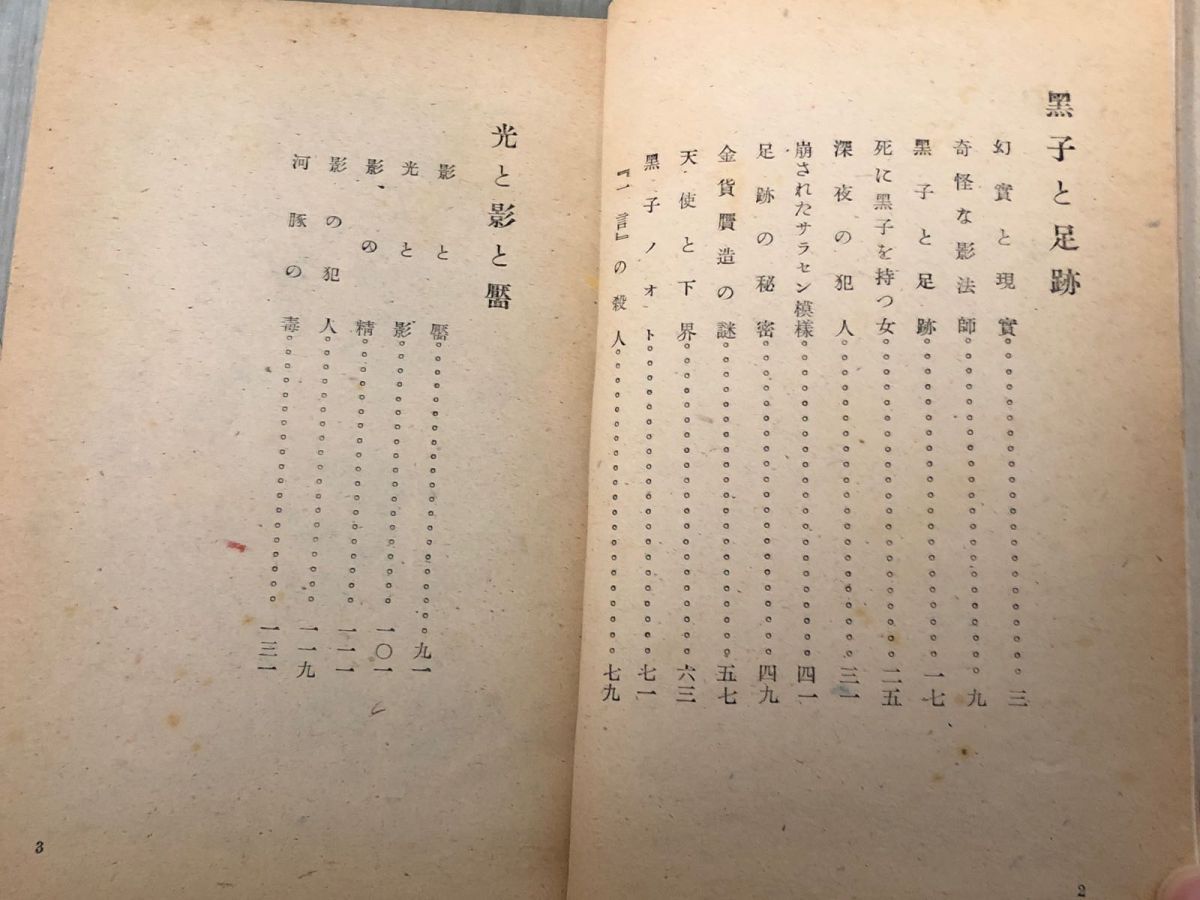 黑子と足跡
幻實と現實。。。。。。。。。。。。。。。。。。。。。。。三
奇怪な影法師。。。。。。。。。。。。。。。。。。。。。。。九
黑子と足跡。。。。。。。。。。。。。。。。。。。。。。。一七
死に黑子を持つ女。。。。。。。。。。。。。。。。。。。。。。。二五
深夜の犯人。。。。。。。。。。。。。。。。。。。。。。。三一
崩されたサラセン模樣。。。。。。。。。。。。。。。。。。。。。。。四一
足跡の秘密。。。。。。。。。。。。。。。。。。。。。。。四九
金貨贋造の謎。。。。。。。。。。。。。。。。。。。。。。。五七
天使と下界。。。。。。。。。。。。。。。。。。。。。。。六三
黑子ノオト。。。。。。。。。。。。。。。。。。。。。。。七一
『一言』の殺人。。。。。。。。。。。。。。。。。。。。。。。七九
2
光と影と靨
影と靨。。。。。。。。。。。。。。。。。。。。。九一
光と影。。。。。。。。。。。。。。。。。。。一〇一
影の精。。。。。。。。。。。。。。。。。。。一一一
影の犯人。。。。。。。。。。。。。。。。。。。一一九
河豚の毒。。。。。。。。。。。。。。。。。。。一三一
3